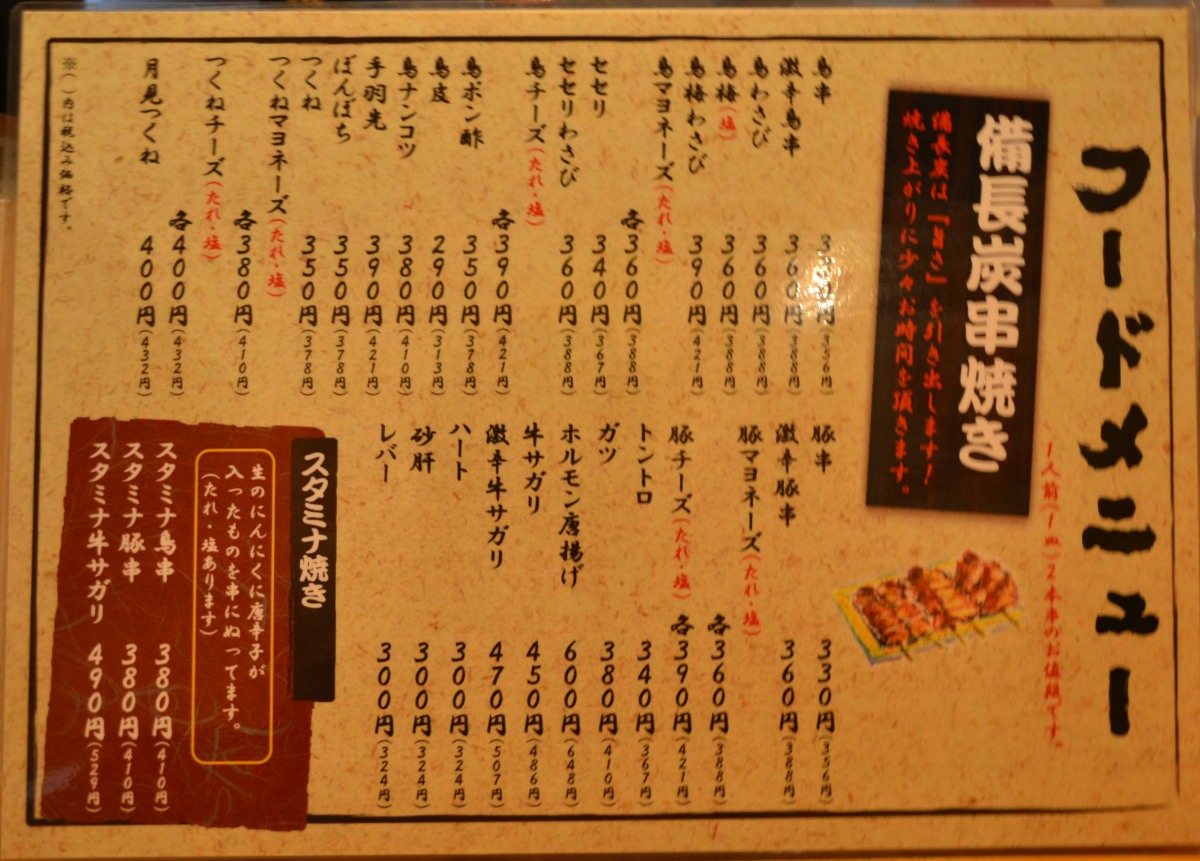 フードメニュー
1人前(1皿)2本串のお値段です。
備長炭串焼き
備長炭は『旨さ』を引き出します!
焼き上がりに少々お時間を頂きます。
鳥串 330円(356円)
激辛鳥串 360円(388円)
鳥わさび 360円(388円)
鳥梅(塩) 360円(388円)
鳥梅わさび 390円(421円)
鳥マヨネーズ(たれ・塩) 各360円(388円)
セセリ 340円(367円)
セセリわさび 360円(388円)
鳥チーズ(たれ・塩) 各390円(421円)
鳥ポン酢 350円(378円)
鳥皮 290円(313円)
鳥ナンコツ 380円(410円)
手羽先 390円(421円)
ぼんぼち 350円(378円)
つくね 350円(378円)
つくねマヨネーズ(たれ・塩) 各380円(410円)
つくねチーズ(たれ・塩) 各400円(432円)
月見つくね 400円(432円)
※( )内は税込み価格です。
豚串 330円(356円)
激辛豚串 360円(388円)
豚マヨネーズ(たれ・塩) 各360円(388円)
豚チーズ(たれ・塩) 各390円(421円)
トントロ 340円(367円)
ガツ 380円(410円)
ホルモン唐揚げ 600円(648円)
牛サガリ 450円(486円)
激辛牛サガリ 470円(507円)
ハート 300円(324円)
砂肝 300円(324円)
レバー 300円(324円)
スタミナ焼き
生のにんにくに唐辛子が
入ったものを串にぬってます。
(たれ・塩あります)
スタミナ鳥串 380円(410円)
スタミナ豚串 380円(410円)
スタミナ牛サガリ 490円(529円)